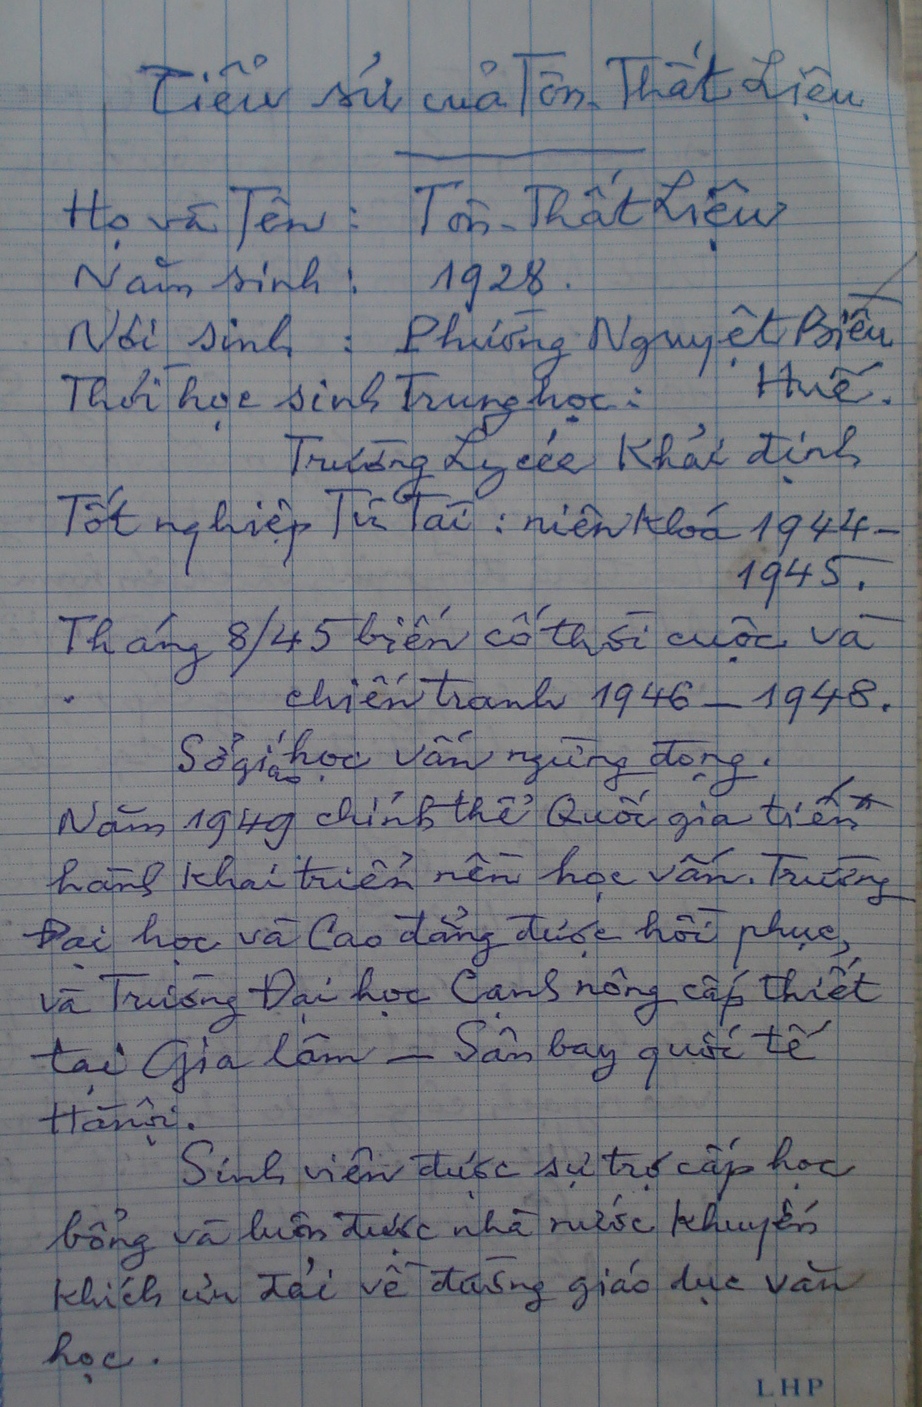 Tiểu sử của Tôn-Thất Liệu
Họ và Tên : Tôn-Thất Liệu
Năm sinh : 1928.
Nơi sinh : Phường Nguyệt Biều
Huế.
Thời học sinh Trung học :
Trường Lycée Khải định
Tốt nghiệp Tú Tài : niên khoá 1944-
1945.
Tháng 8/45 biến cố thời cuộc và
chiến tranh 1946 - 1948.
Sở giáo học vấn ngừng đọng.
Năm 1949 chính thể Quốc gia tiến
hành khai triển nền học vấn. Trường
Đại học và Cao đẳng được hồi phục,
và Trường Đại học Canh nông cấp thiết
tại Gia lâm - Sân bay quốc tế
Hànội.
Sinh viên được sự trợ cấp học
bổng và luôn được nhà nước khuyến
khích ưu đãi về đường giáo dục văn
học.
LHP